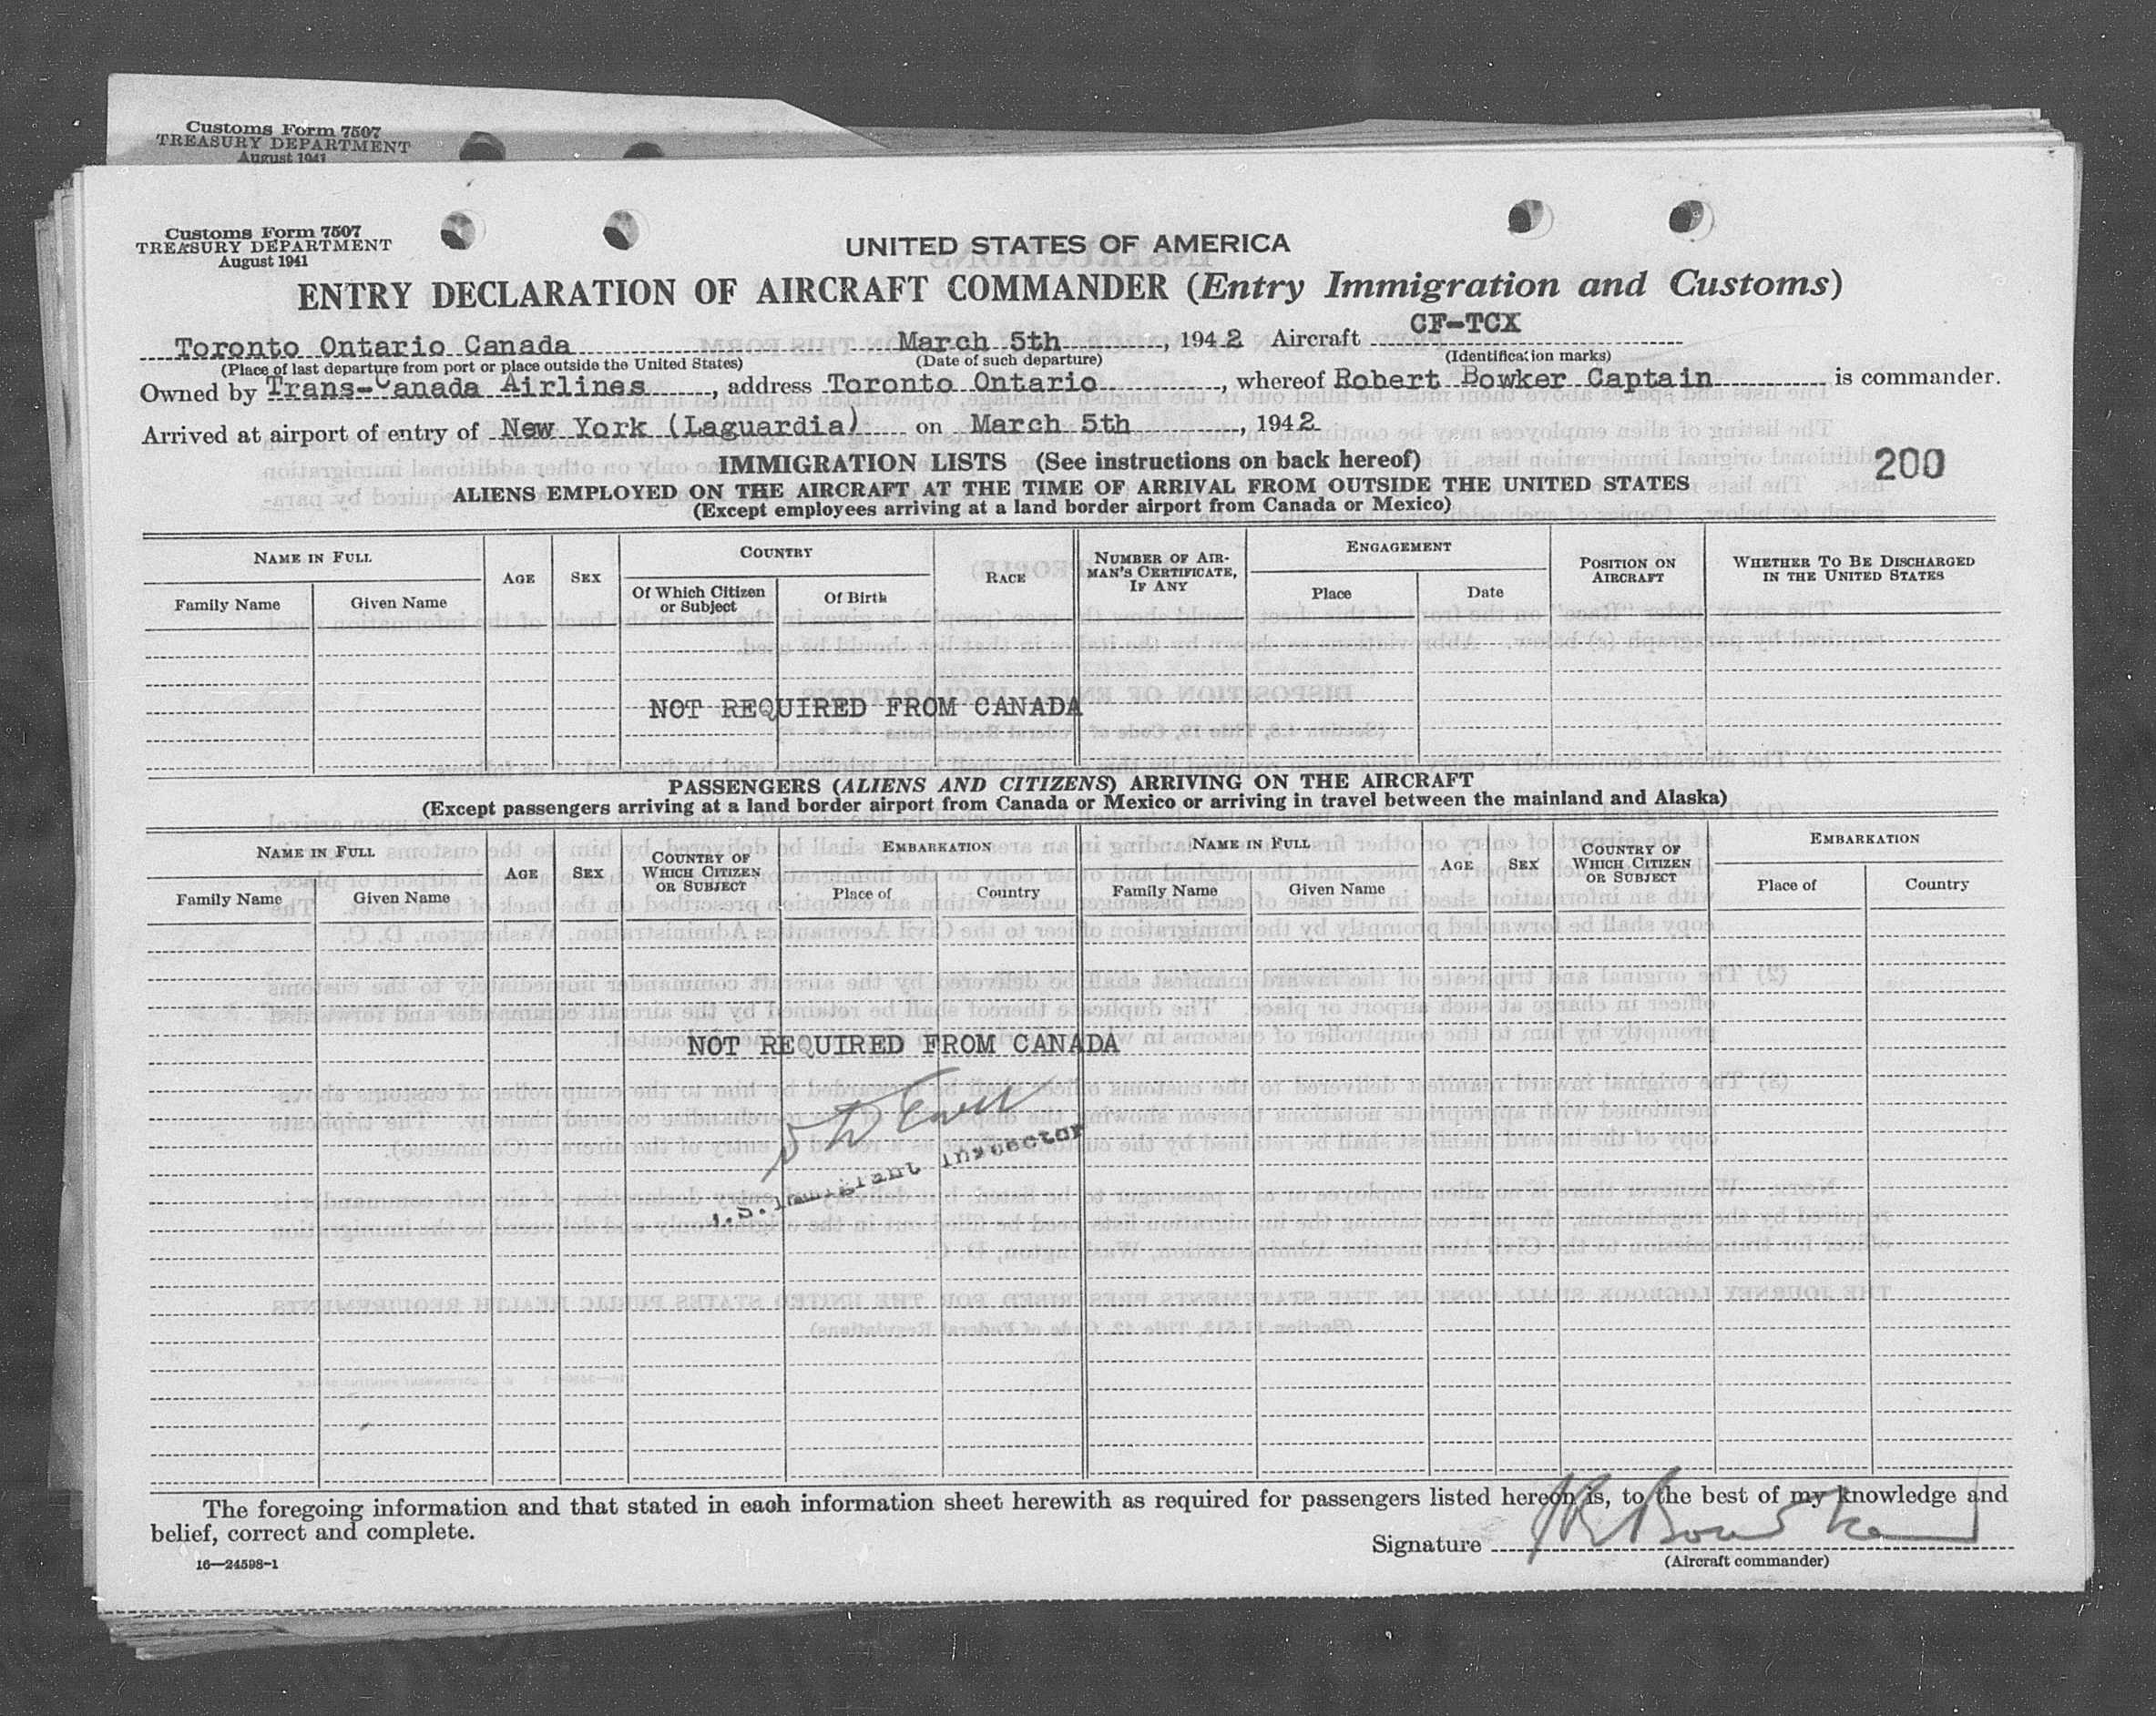 Customs Form 7507
TREASURY DEPARTMENT
August 1941
Customs Form 7507
TREASURY DEPARTMENT
August 1941
UNITED STATES OF AMERICA
ENTRY DECLARATION OF AIRCRAFT COMMANDER (Entry Immigration and Customs)
Toronto Ontario Canada March 5th, 1942 Aircraft CF-TCX
(Place of last departure from port or place outside the United States) (Date of such departure) (Identification marks)
Owned by Trans-Canada Airlines, address Toronto Ontario, whereof Robert Bowker Captain is commander.
Arrived at airport of entry of New York (Laguardia) on March 5th, 1942
IMMIGRATION LISTS (See instructions on back hereof)
200
ALIENS EMPLOYED ON THE AIRCRAFT AT THE TIME OF ARRIVAL FROM OUTSIDE THE UNITED STATES
(Except employees arriving at a land border airport from Canada or Mexico)
NAME IN FULL AGE SEX COUNTRY RACE NUMBER OF AIRMAN'S CERTIFICATE, IF ANY ENGAGEMENT POSITION ON AIRCRAFT WHETHER TO BE DISCHARGED IN THE UNITED STATES
Family Name Given Name Of Which Citizen or Subject Of Birth Place Date
NOT REQUIRED FROM CANADA
PASSENGERS (ALIENS AND CITIZENS) ARRIVING ON THE AIRCRAFT
(Except passengers arriving at a land border airport from Canada or Mexico or arriving in travel between the mainland and Alaska)
NAME IN FULL AGE SEX COUNTRY OF WHICH CITIZEN OR SUBJECT EMBARKATION NAME IN FULL AGE SEX COUNTRY OF WHICH CITIZEN OR SUBJECT EMBARKATION
Family Name Given Name Place of Country Family Name Given Name Place of Country
NOT REQUIRED FROM CANADA
.S. Immigrant Inspector
The foregoing information and that stated in each information sheet herewith as required for passengers listed hereon is, to the best of my knowledge and
belief, correct and complete.
Signature R Bowker
(Aircraft commander)
16—24598-1